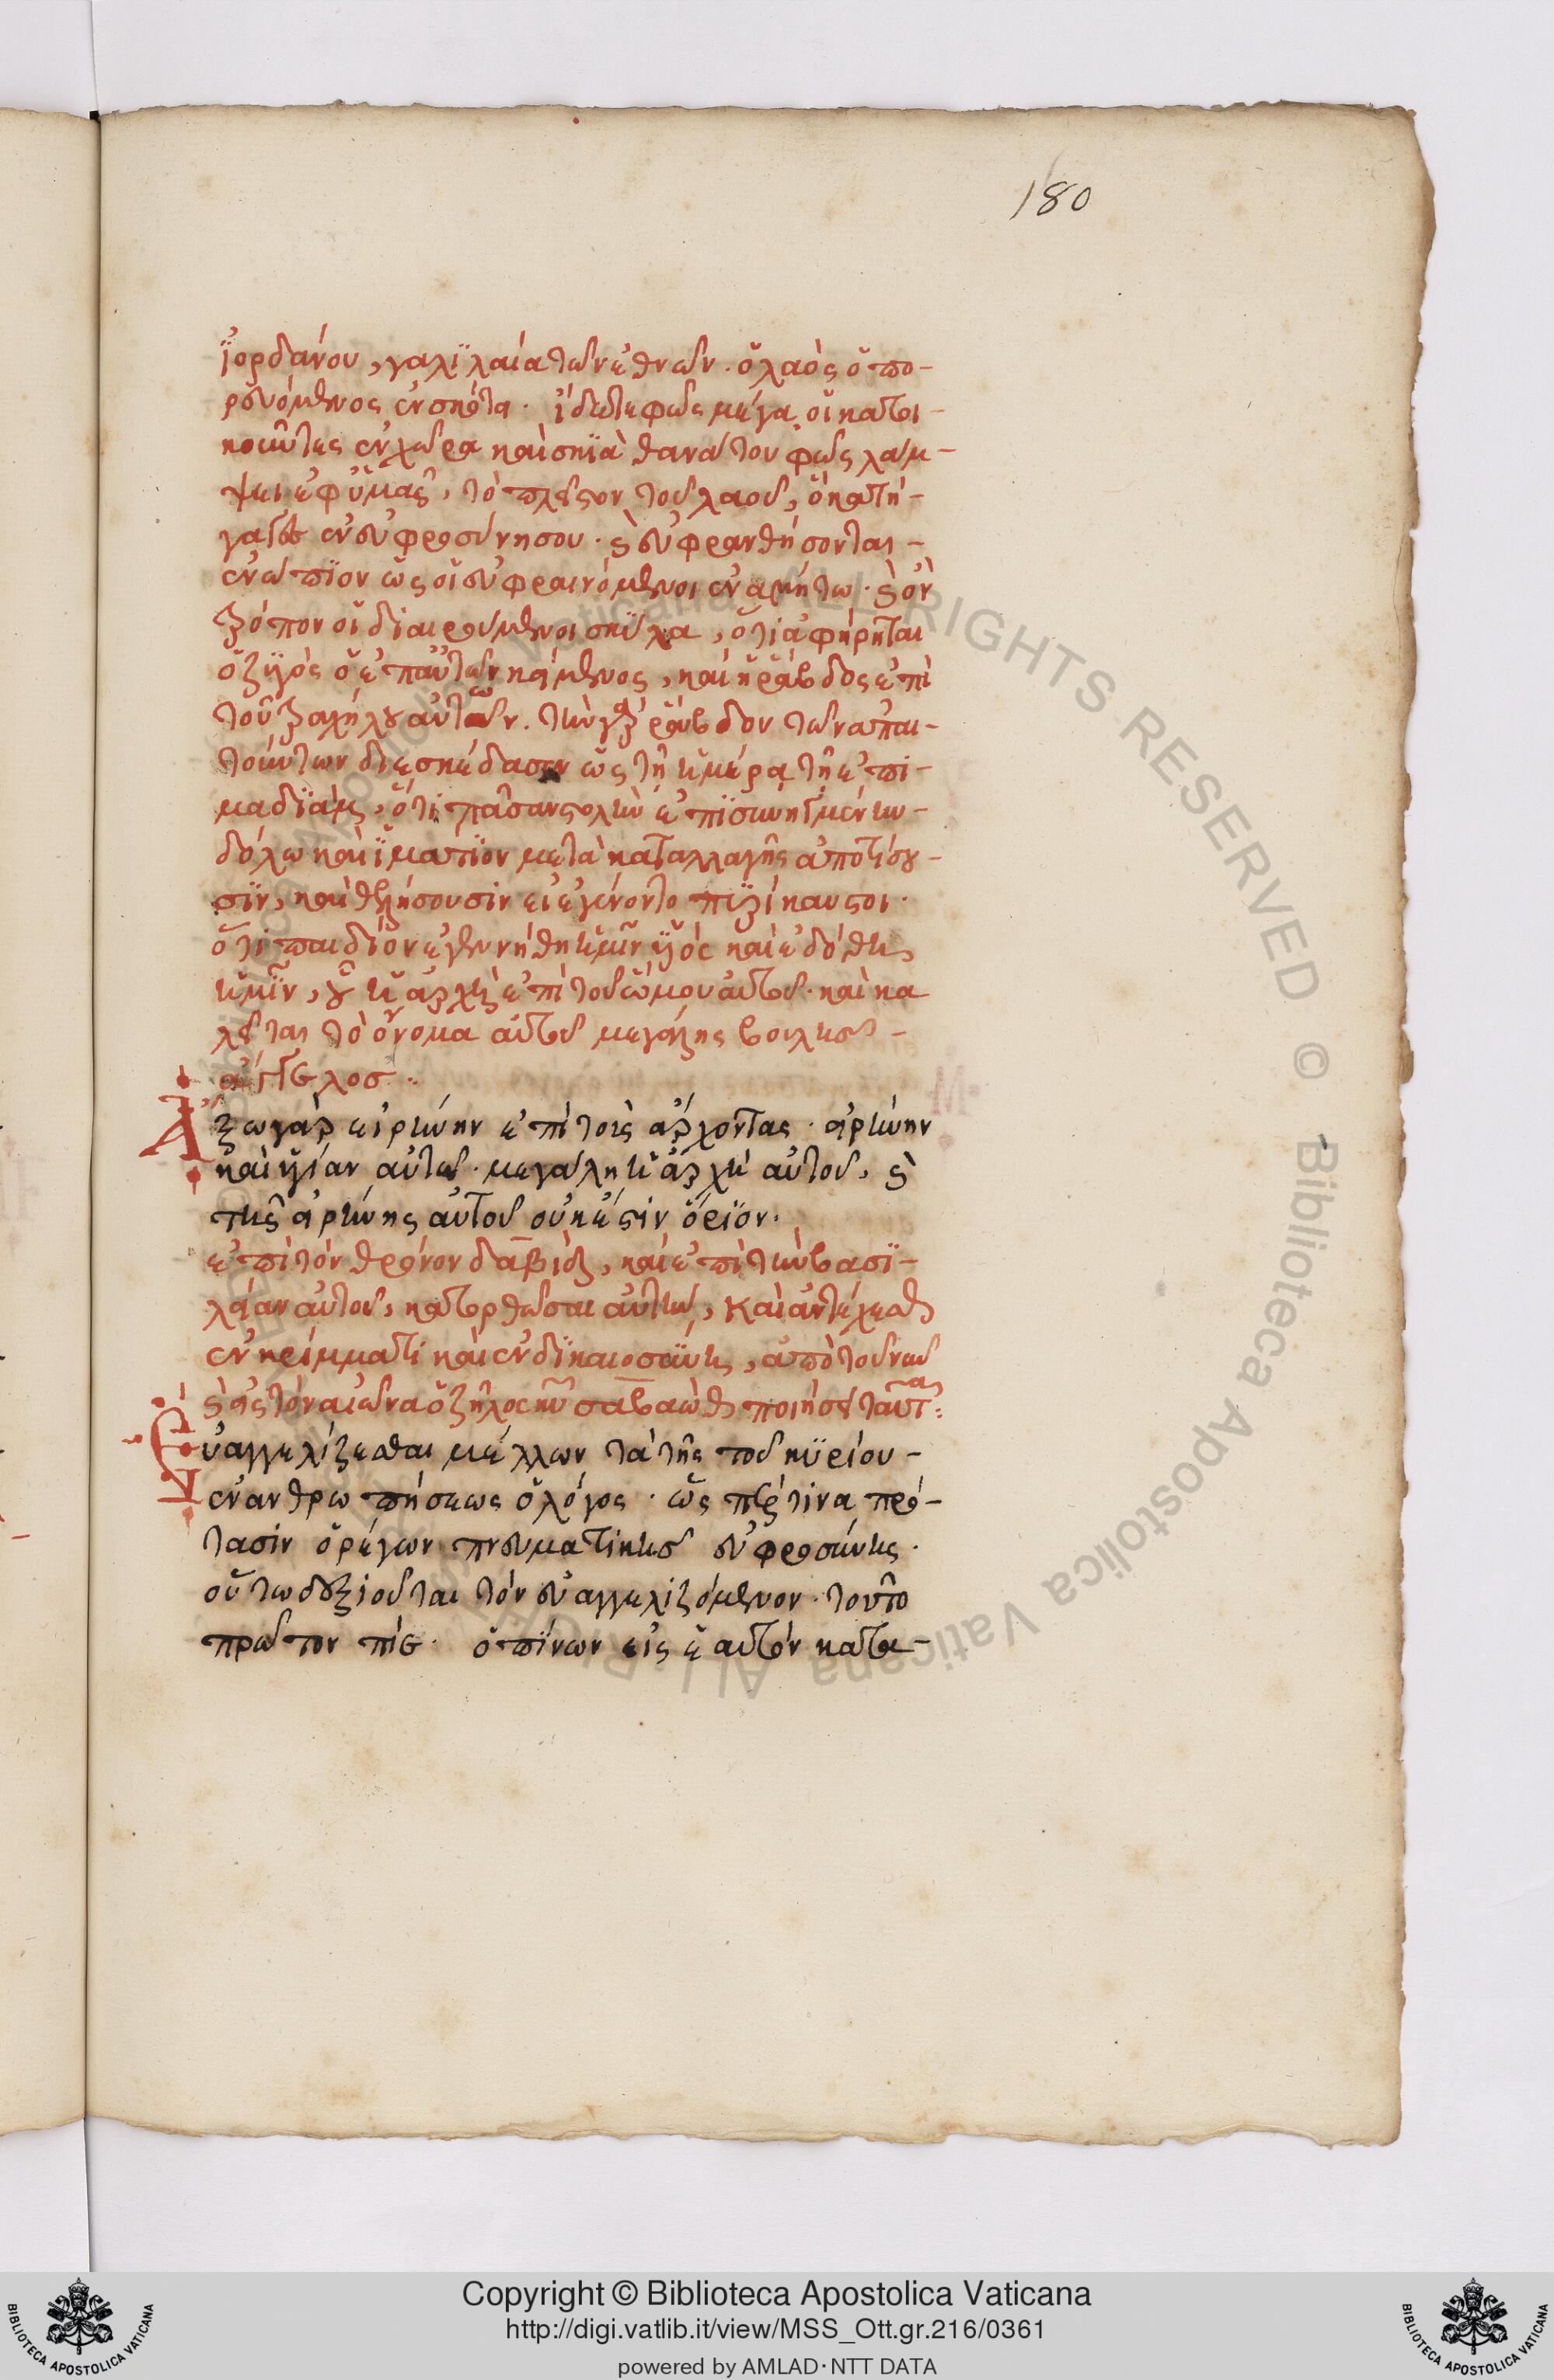 180
ἰορδάνου, γαλιλαία τῶν ἐθνῶν. ὁ λαὸς ὁ πο-
ρευόμενος ἐν σκότει. ἴδετε φῶς μέγα. οἱ κατοι-
κοῦντες ἐν χώρα καὶ σκιὰ θανάτου φῶς λάμ-
ψει ἐφ' ὑμᾶς, τὸ πλεῖστον τοῦ λαοῦ, ὃ κατή-
γαγες ἐν εὐφροσύνη σου. καὶ εὐφρανθήσονται-
ἐνώπιον ὡς οἱ εὐφραινόμενοι ἐν ἀμήτω. καὶ ὃν
τρόπον οἱ διαιρούμενοι σκῦλα, ὅτι ἀφήρηται
ὁ ζυγὸς ὁ ἐπ' αὐτῶν κείμενος, καὶ ἡ ῥάβδος ἐπὶ
τοῦ τραχήλου αὐτῶν. τὴν γὰρ ῥάβδον τῶν ἀπαι-
τούντων διεσκέδασεν ὡς τῆ ἡμέρα τῆ ἐπι-
μαδιάμ, ὅτι πᾶσαν στολὴν ἐπισυνηγμένην-
δόλω καὶ ἱμάτιον μετὰ καταλλαγῆς ἀποτίσου-
σιν, καὶ θελήσουσιν εἰ ἐγένοντο πυρίκαυστοι.
ὅτι παιδίον ἐγεννήθη ἡμῖν υἱὸς καὶ ἐδόθη
ἡμῖν, οὗ ἡ ἀρχὴ ἐπὶ τοῦ ὤμου αὐτοῦ. καὶ κα
λεῖται τὸ ὄνομα αὐτοῦ μεγάλης βουλῆς-
ἄγγελος.
Ἄξω γὰρ εἰρήνην ἐπὶ τοὺς ἄρχοντας. εἰρήνην
καὶ ὑγίαν αὐτῶ. μεγάλη ἡ ἀρχὴ αὐτοῦ, καὶ
τῆς εἰρήνης αὐτοῦ οὐκ ἔστιν ὅριον.
ἐπὶ τὸν θρόνον δαβὶδ, καὶ ἐπὶ τὴν βασι-
λείαν αὐτοῦ, κατορθῶσαι αὐτὴν, καὶ ἀντέχεσθαι
ἐν κρίμματι καὶ ἐν δικαιοσύνη, ἀπὸ τοῦ νῦν
καὶ εἰς τὸν αἰῶνα ὁ ζῆλος κυ σαβαὼθ ποιήσει ταῦτα:
Εὐαγγελίζεσθαι μέλλων τὰ τῆς τοῦ κυρίου-
ἐνανθρωπήσεως ὁ λόγος. ὥσπερ τινα πρό-
τασιν ὀρέγων πνευματικῆς εὐφροσύνης.
οὕτω δεξιοῦται τὸν εὐαγγελιζόμενον. τοῦτο
πρῶτον πίε. ὁ πίνων εἰς ἑαυτὸν κατα-
Copyright © Biblioteca Apostolica Vaticana
http://digi.vatlib.it/view/MSS_Ott.gr.216/0361
powered by AMLAD·NTT DATA
BIBLIOTECA APOSTOLICA VATICANA
BIBLIOTECA APOSTOLICA VATICANA